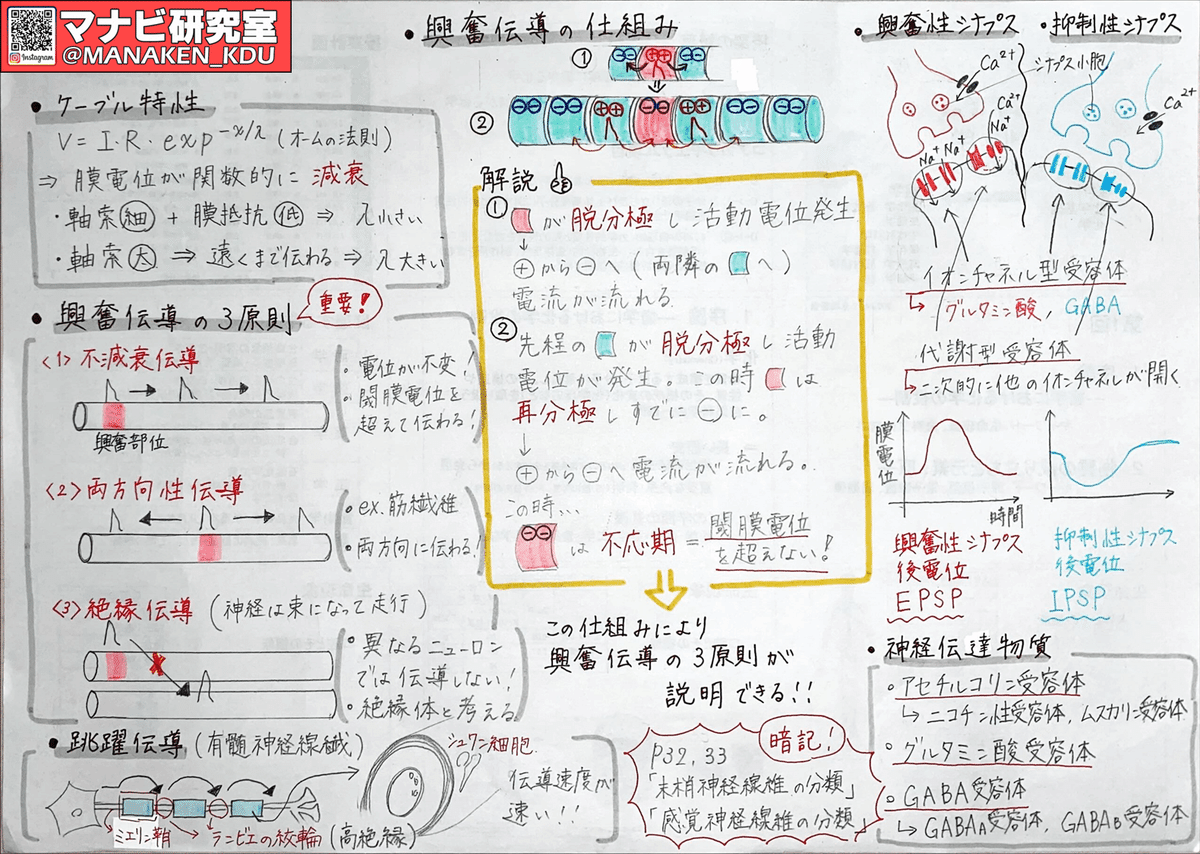 マナビ研究室
@MANAKEN_KDU
Instagram
・ケーブル特性
V = I・R・exp^-x/λ (オームの法則)
⇒ 膜電位が関数的に 減衰
・軸索(細) + 膜抵抗(低) ⇒ λ小さい
・軸索(太) ⇒ 遠くまで伝わる ⇒ λ大きい
・興奮伝導の3原則
重要!
<1> 不減衰伝導
興奮部位
・電位が不変!
・閾膜電位を
超えて伝わる!
<2> 両方向性伝導
・ex. 筋繊維
・両方向に伝わる!
<3> 絶縁伝導 (神経は束になって走行)
・異なるニューロン
では伝導しない!
・絶縁体と考える
・跳躍伝導 (有髄神経線繊)
シュワン細胞
伝導速度が
速い!!
ミエリン鞘
ランビエの絞輪 (高絶縁)
・興奮伝導の仕組み
①
②
解説
① が脱分極し活動電位発生
↓
⊕から⊖へ (両隣の へ)
電流が流れる
② 先程の が 脱分極し活動
電位が発生。この時 は
再分極しすでに⊖に。
↓
⊕から⊖へ電流が流れる。
この時…
は 不応期 = 閾膜電位
を超えない!
この仕組みにより
興奮伝導の3原則が
説明できる!!
暗記!
P32, 33
「末梢神経線維の分類」
「感覚神経線維の分類」
・興奮性シナプス
・抑制性シナプス
Ca2+
シナプス小胞
Ca2+
Ca2+
Na+
Na+
Na+
イオンチャネル型受容体
グルタミン酸, GABA
代謝型受容体
二次的に他のイオンチャネルが開く
膜電位
時間
興奮性シナプス
後電位
EPSP
抑制性シナプス
後電位
IPSP
・神経伝達物質
・アセチルコリン受容体
ニコチン性受容体, ムスカリン受容体
・グルタミン酸受容体
・GABA受容体
GABAA受容体, GABAB受容体